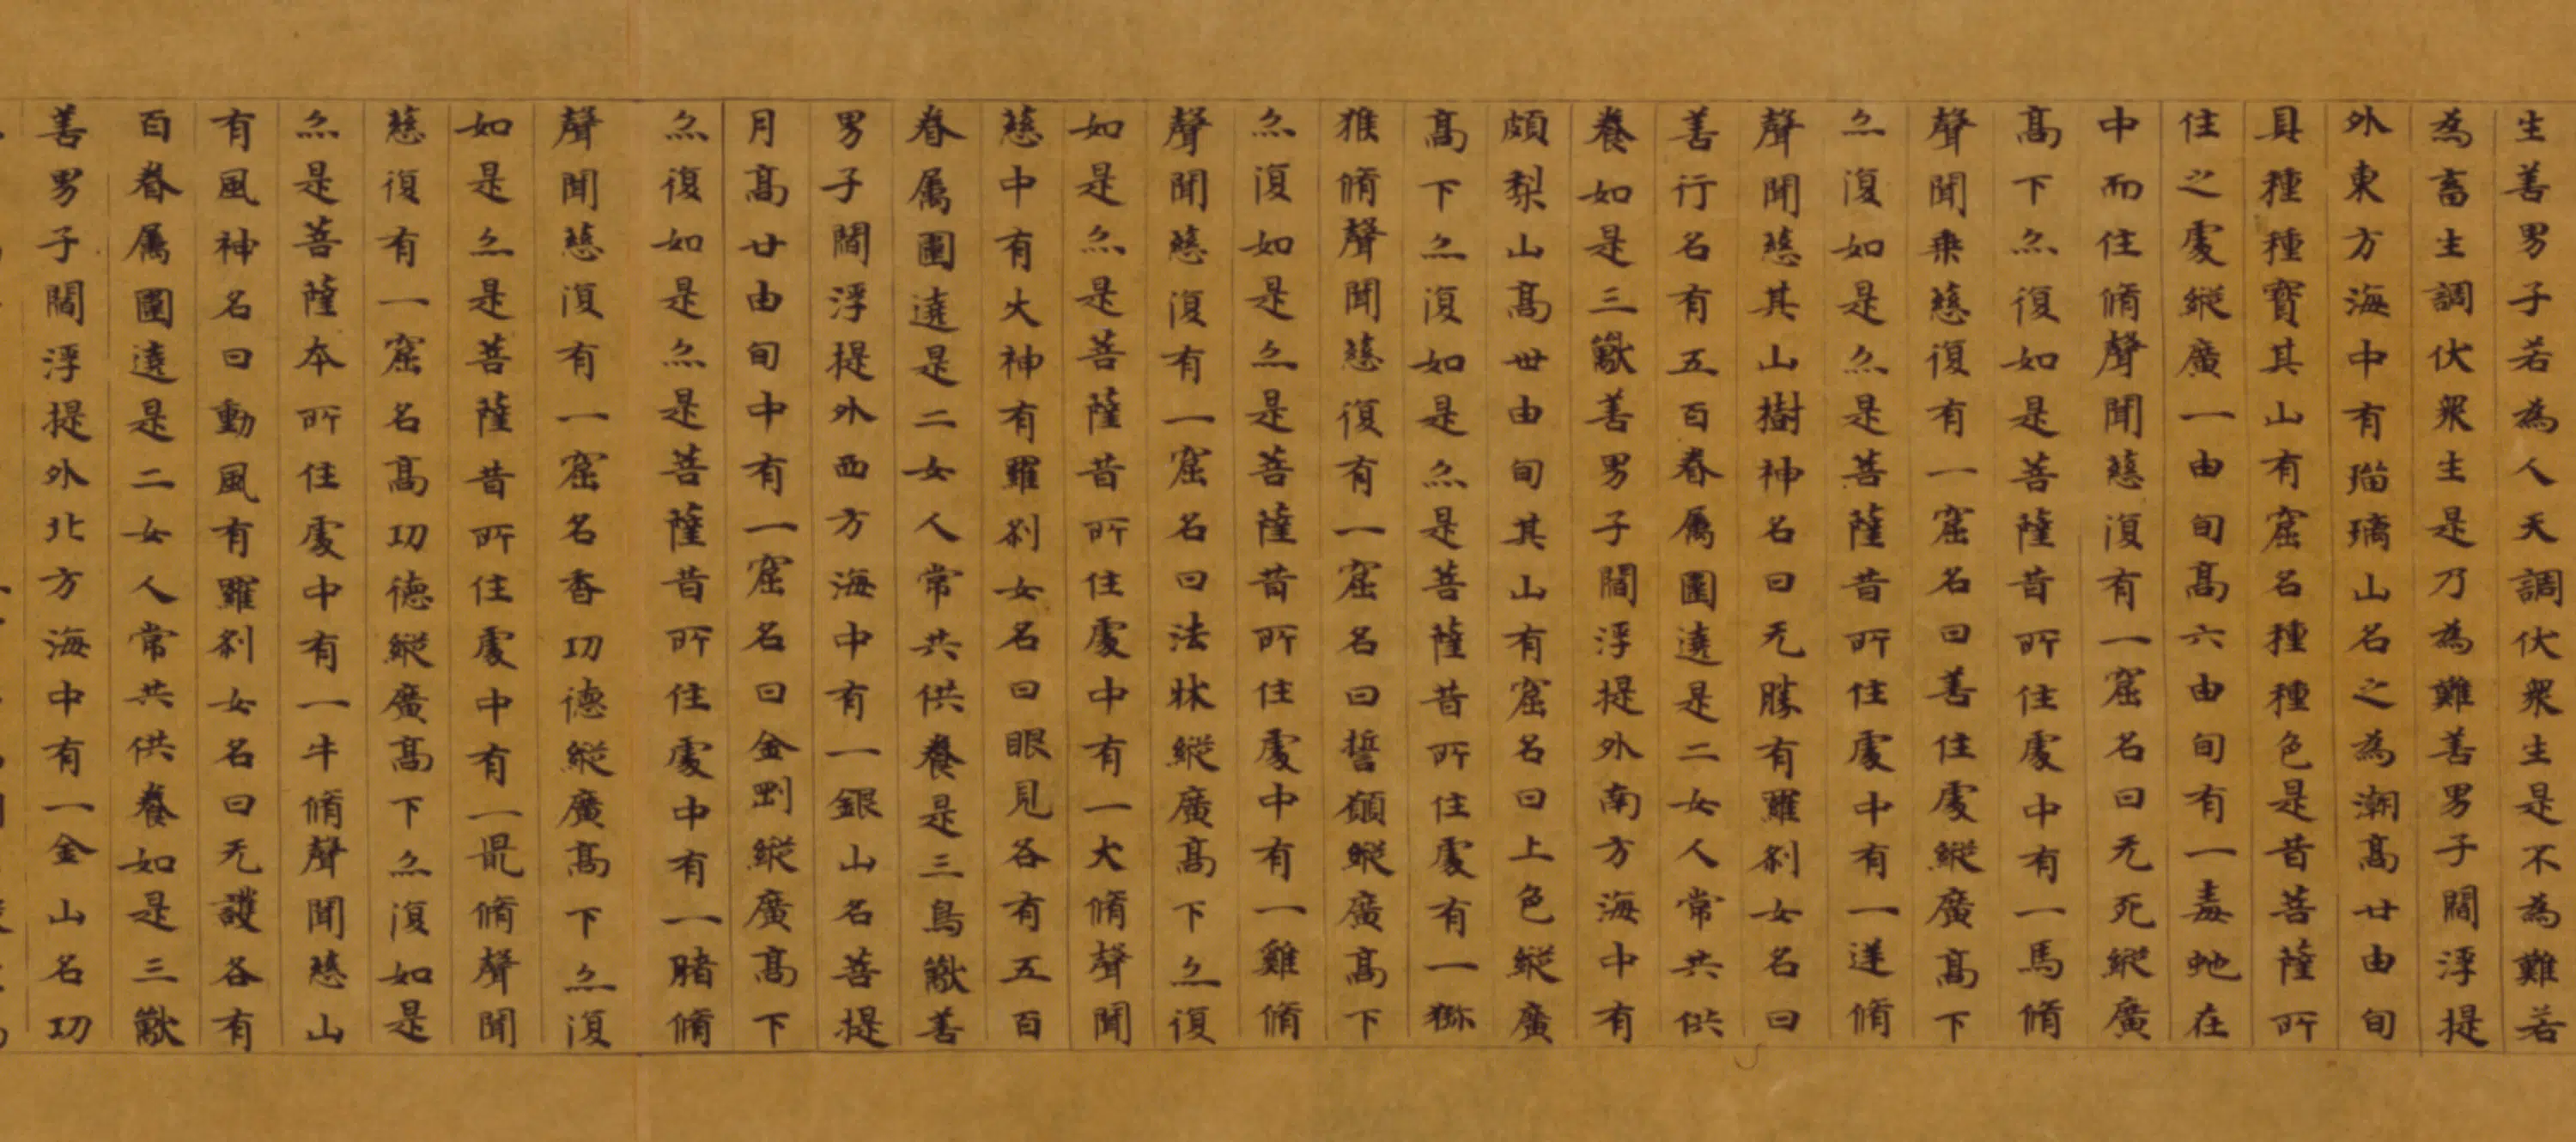 生善男子若為人天調伏衆生是不為難若
為畜生調伏衆生是乃為難善男子閻浮提
外東方海中有瑠璃山名之為潮高廿由旬
具種種寳其山有窟名種種色是昔菩薩所
住之處縱廣一由旬高六由旬有一毒虵在
中而住脩聲聞慈復有一窟名曰无死縱廣
高下亦復如是菩薩昔所住處中有一馬脩
聲聞乗慈復有一窟名曰善住處縱廣高下
亦復如是亦是菩薩昔所住處中有一迷脩
聲聞慈其山樹神名曰无勝有羅刹女名曰
善行名有五百眷属圍遶是二女人常共供
養如是三獸善男子閻浮提外南方海中有
頗梨山高丗由旬其山有窟名曰上色縱廣
高下亦復如是亦是菩薩昔所住處有一獼
猴脩聲聞慈復有一窟名曰誓願縱廣高下
亦復如是亦是菩薩昔所住處中有一雞脩
聲聞慈復有一窟名曰法牀縱廣高下亦復
如是亦是菩薩昔所住處中有一犬脩聲聞
慈中有火神有羅刹女名曰眼見各有五百
眷属圍遶是二女人常共供養是三鳥獸善
男子閻浮提外西方海中有一銀山名菩提
月高廿由旬中有一窟名曰金剛縱廣高下
亦復如是亦是菩薩昔所住處中有一賭脩
聲聞慈復有一窟名香功德縱廣高下亦復
如是亦是菩薩昔所住處中有一鼠脩聲聞
慈復有一窟名高功德縱廣高下亦復如是
亦是菩薩本所住處中有一牛脩聲聞慈山
有風神名曰動風有羅刹女名曰无護各有
百眷属圍遶是二女人常共供養如是三獸
善男子閻浮提外北方海中有一金山名功